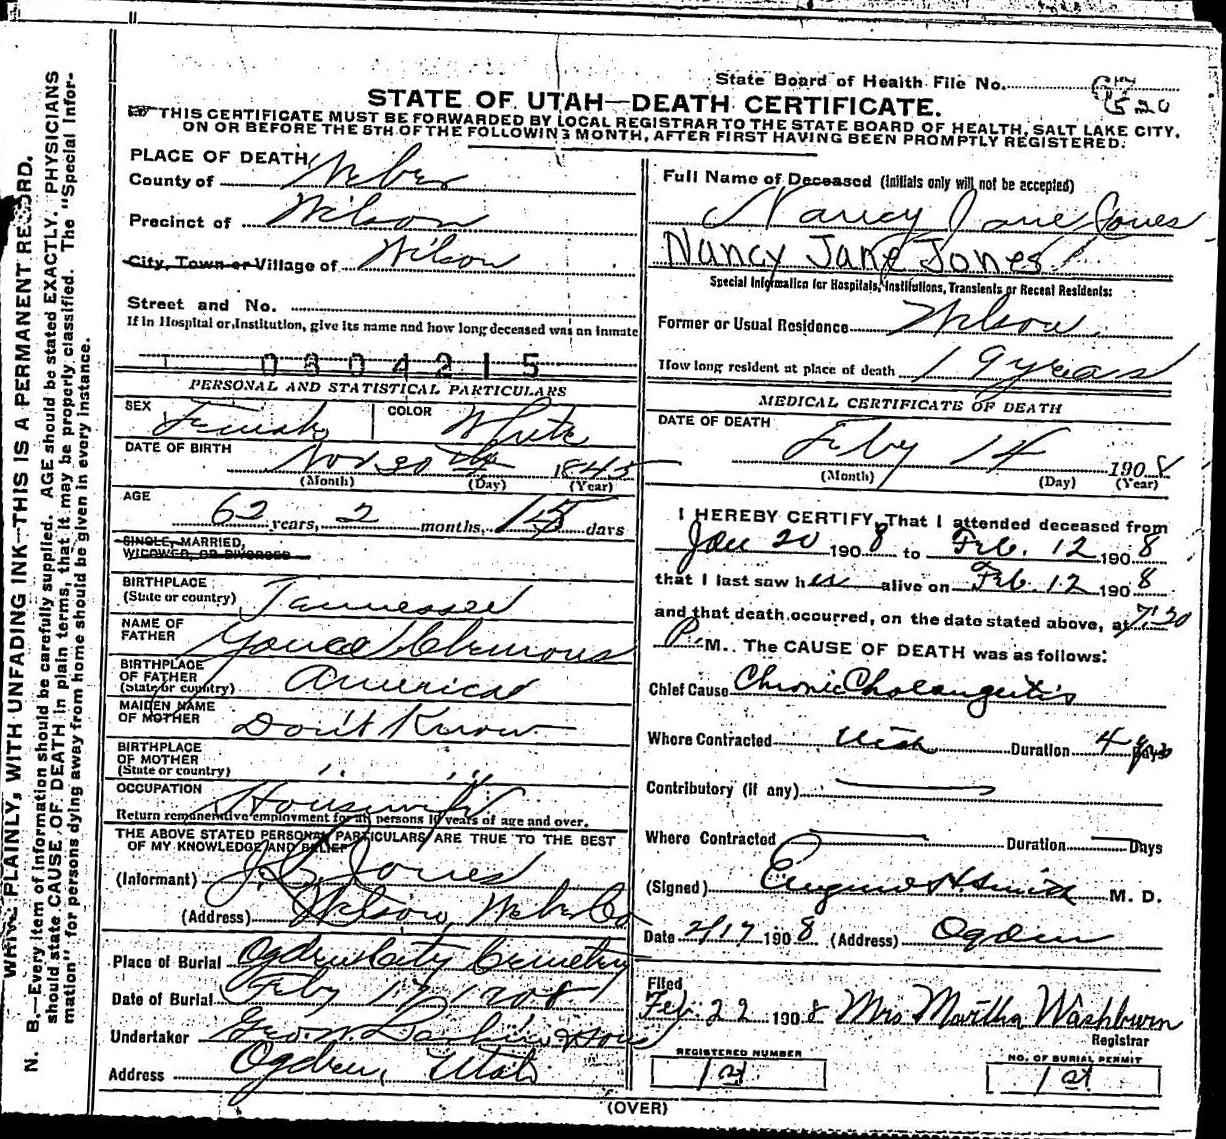 State Board of Health File No. 520
STATE OF UTAH—DEATH CERTIFICATE.
THIS CERTIFICATE MUST BE FORWARDED BY LOCAL REGISTRAR TO THE STATE BOARD OF HEALTH, SALT LAKE CITY,
ON OR BEFORE THE 5TH OF THE FOLLOWING MONTH, AFTER FIRST HAVING BEEN PROMPTLY REGISTERED.
PLACE OF DEATH
County of Weber
Precinct of Wilson
City, Town or Village of Wilson
Street and No.
If in Hospital or Institution, give its name and how long deceased was an inmate
0304215
PERSONAL AND STATISTICAL PARTICULARS
SEX Female COLOR White
DATE OF BIRTH Nov 30 1845
(Month) (Day) (Year)
AGE
62 years, 2 months, 15 days
SINGLE, MARRIED,
WIDOWED, OR DIVORCED
BIRTHPLACE
(State or country) Tennessee
NAME OF
FATHER
BIRTHPLACE
OF FATHER
(State or country) America
MAIDEN NAME
OF MOTHER Don't Know
BIRTHPLACE
OF MOTHER
(State or country) " "
OCCUPATION Housewife
Return remunerative employment for all persons 10 years of age and over.
THE ABOVE STATED PERSONAL PARTICULARS ARE TRUE TO THE BEST
OF MY KNOWLEDGE AND BELIEF
(Informant) Jones
(Address) Wilson, Weber Co
Place of Burial Ogden City Cemetery
Date of Burial Feby 17 1908
Undertaker Geo. W. Larkin & Sons
Address Ogden, Utah
Full Name of Deceased (initials only will not be accepted)
Nancy Jane Jones
Nancy Jane Jones
Special Information for Hospitals, Institutions, Transients or Recent Residents:
Former or Usual Residence Wilson
How long resident at place of death 19 years
MEDICAL CERTIFICATE OF DEATH
DATE OF DEATH
Feby 14 1908
(Month) (Day) (Year)
I HEREBY CERTIFY, That I attended deceased from
Jan 20 1908 to Feb. 12 1908
that I last saw her alive on Feb. 12 1908
and that death occurred, on the date stated above, at 7:30
P. M. The CAUSE OF DEATH was as follows:
Chief Cause Chronic Cholangeitis
Where Contracted Utah Duration 4 yrs Days
Contributory (if any)
Where Contracted Duration Days
(Signed) Eugene H. Smith M. D.
Date 2/17 1908 (Address) Ogden
Filed
Feb. 22 1908 Mrs Martha Washburn
Registrar
REGISTERED NUMBER
NO. OF BURIAL PERMIT
1st
(OVER)
N. B.—Every item of information should be carefully supplied. AGE should be stated EXACTLY. PHYSICIANS
should state CAUSE OF DEATH in plain terms, that it may be properly classified. The "Special Infor-
mation" for persons dying away from home should be given in every instance.
WRITE PLAINLY, WITH UNFADING INK—THIS IS A PERMANENT RECORD.